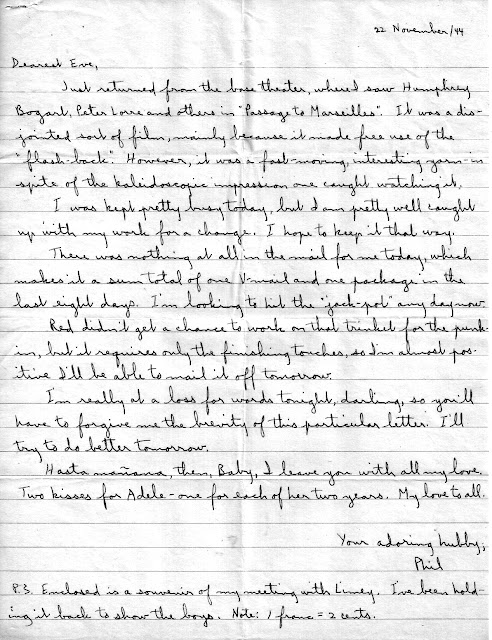 22 November/44
Dearest Eve,
Just returned from the base theater, where I saw Humphrey
Bogart, Peter Lorre and others in "Passage to Marseilles". It was a dis-
jointed sort of film, mainly because it made free use of the
"flash-back". However, it was a fast-moving, interesting yarn - in
spite of the kaleidoscopic impression one caught watching it.
I was kept pretty busy today, but I am pretty well caught
up with my work for a change. I hope to keep it that way.
There was nothing at all in the mail for me today, which
makes it a sum total of one V-mail and one package in the
last eight days. I'm looking to hit the "jack-pot" any day now.
Red didn't get a chance to work on that trinket for the punk-
in, but it requires only the finishing touches, so I'm almost pos-
itive I'll be able to mail it off tomorrow.
I'm really at a loss for words tonight, darling, so you'll
have to forgive me the brevity of this particular letter. I'll
try to do better tomorrow.
Hasta mañana, then, Baby, I leave you with all my love.
Two kisses for Adele - one for each of her two years. My love to all.
Your adoring hubby,
Phil
P.S. Enclosed is a souvenir of my meeting with Limey. I've been hold-
ing it back to show the boys. Note: 1 franc = 2 cents.